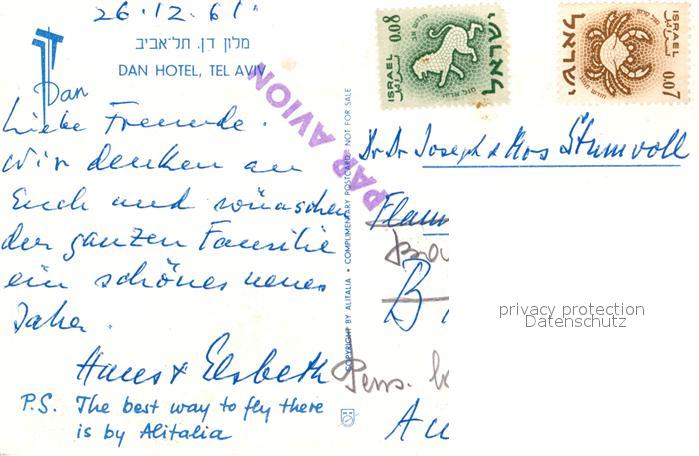 26.12.61.
מלון דן. תל־אביב
DAN HOTEL, TEL AVIV
Dan
Liebe Freunde.
Wir denken an
Euch und wünschen
der ganzen Familie
ein schönes neues
Jahr.
Hans & Elsbeth
P.S. The best way to fly there
is by Alitalia
PAR AVION
COPYRIGHT BY ALITALIA • COMPLIMENTARY POSTCARD: NOT FOR SALE
ISRAEL 0.08
ישראל
ISRAEL 0.07
ישראל
Dr. Dr. Joseph & Stumvoll
privacy protection
Datenschutz
Pens.